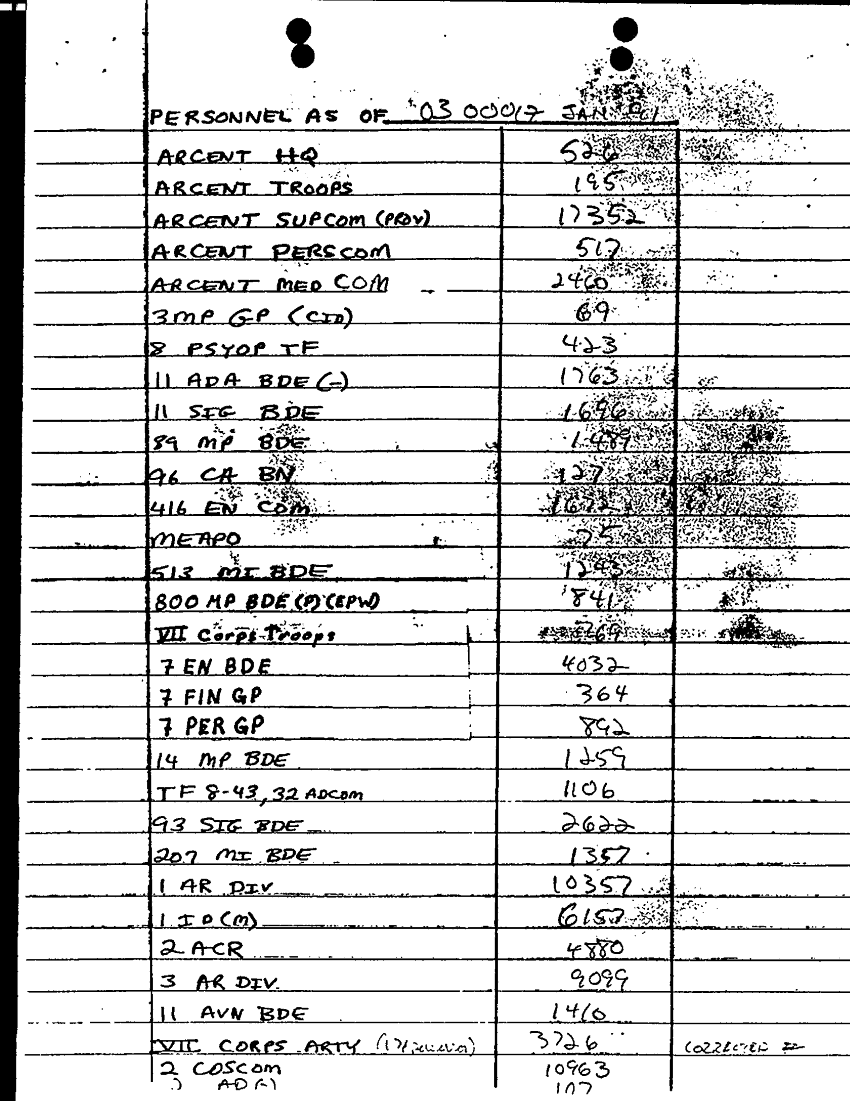 PERSONNEL AS OF 03 0001Z JAN 91
ARCENT HQ 526
ARCENT TROOPS 195
ARCENT SUPCOM (PROV) 17352
ARCENT PERSCOM 517
ARCENT MED COM 2460
3 MP GP (CID) 69
8 PSYOP TF 423
11 ADA BDE (-) 1763
11 SIG BDE 1696
89 MP BDE 1489
96 CA BN 127
416 EN COM
MEAPO
513 MI BDE 1293
800 MP BDE (P) (EPW) 841
VII Corps Troops
7 EN BDE 4032
7 FIN GP 364
7 PER GP 892
14 MP BDE 1259
TF 8-43, 32 ADCOM 1106
93 SIG BDE 2622
207 MI BDE 1357
1 AR DIV 10357
1 ID (M) 6157
2 ACR 4880
3 AR DIV 9099
11 AVN BDE 1410
VII CORPS ARTY 3726 CORRECTED #
2 COSCOM 10963
AD (-) 107